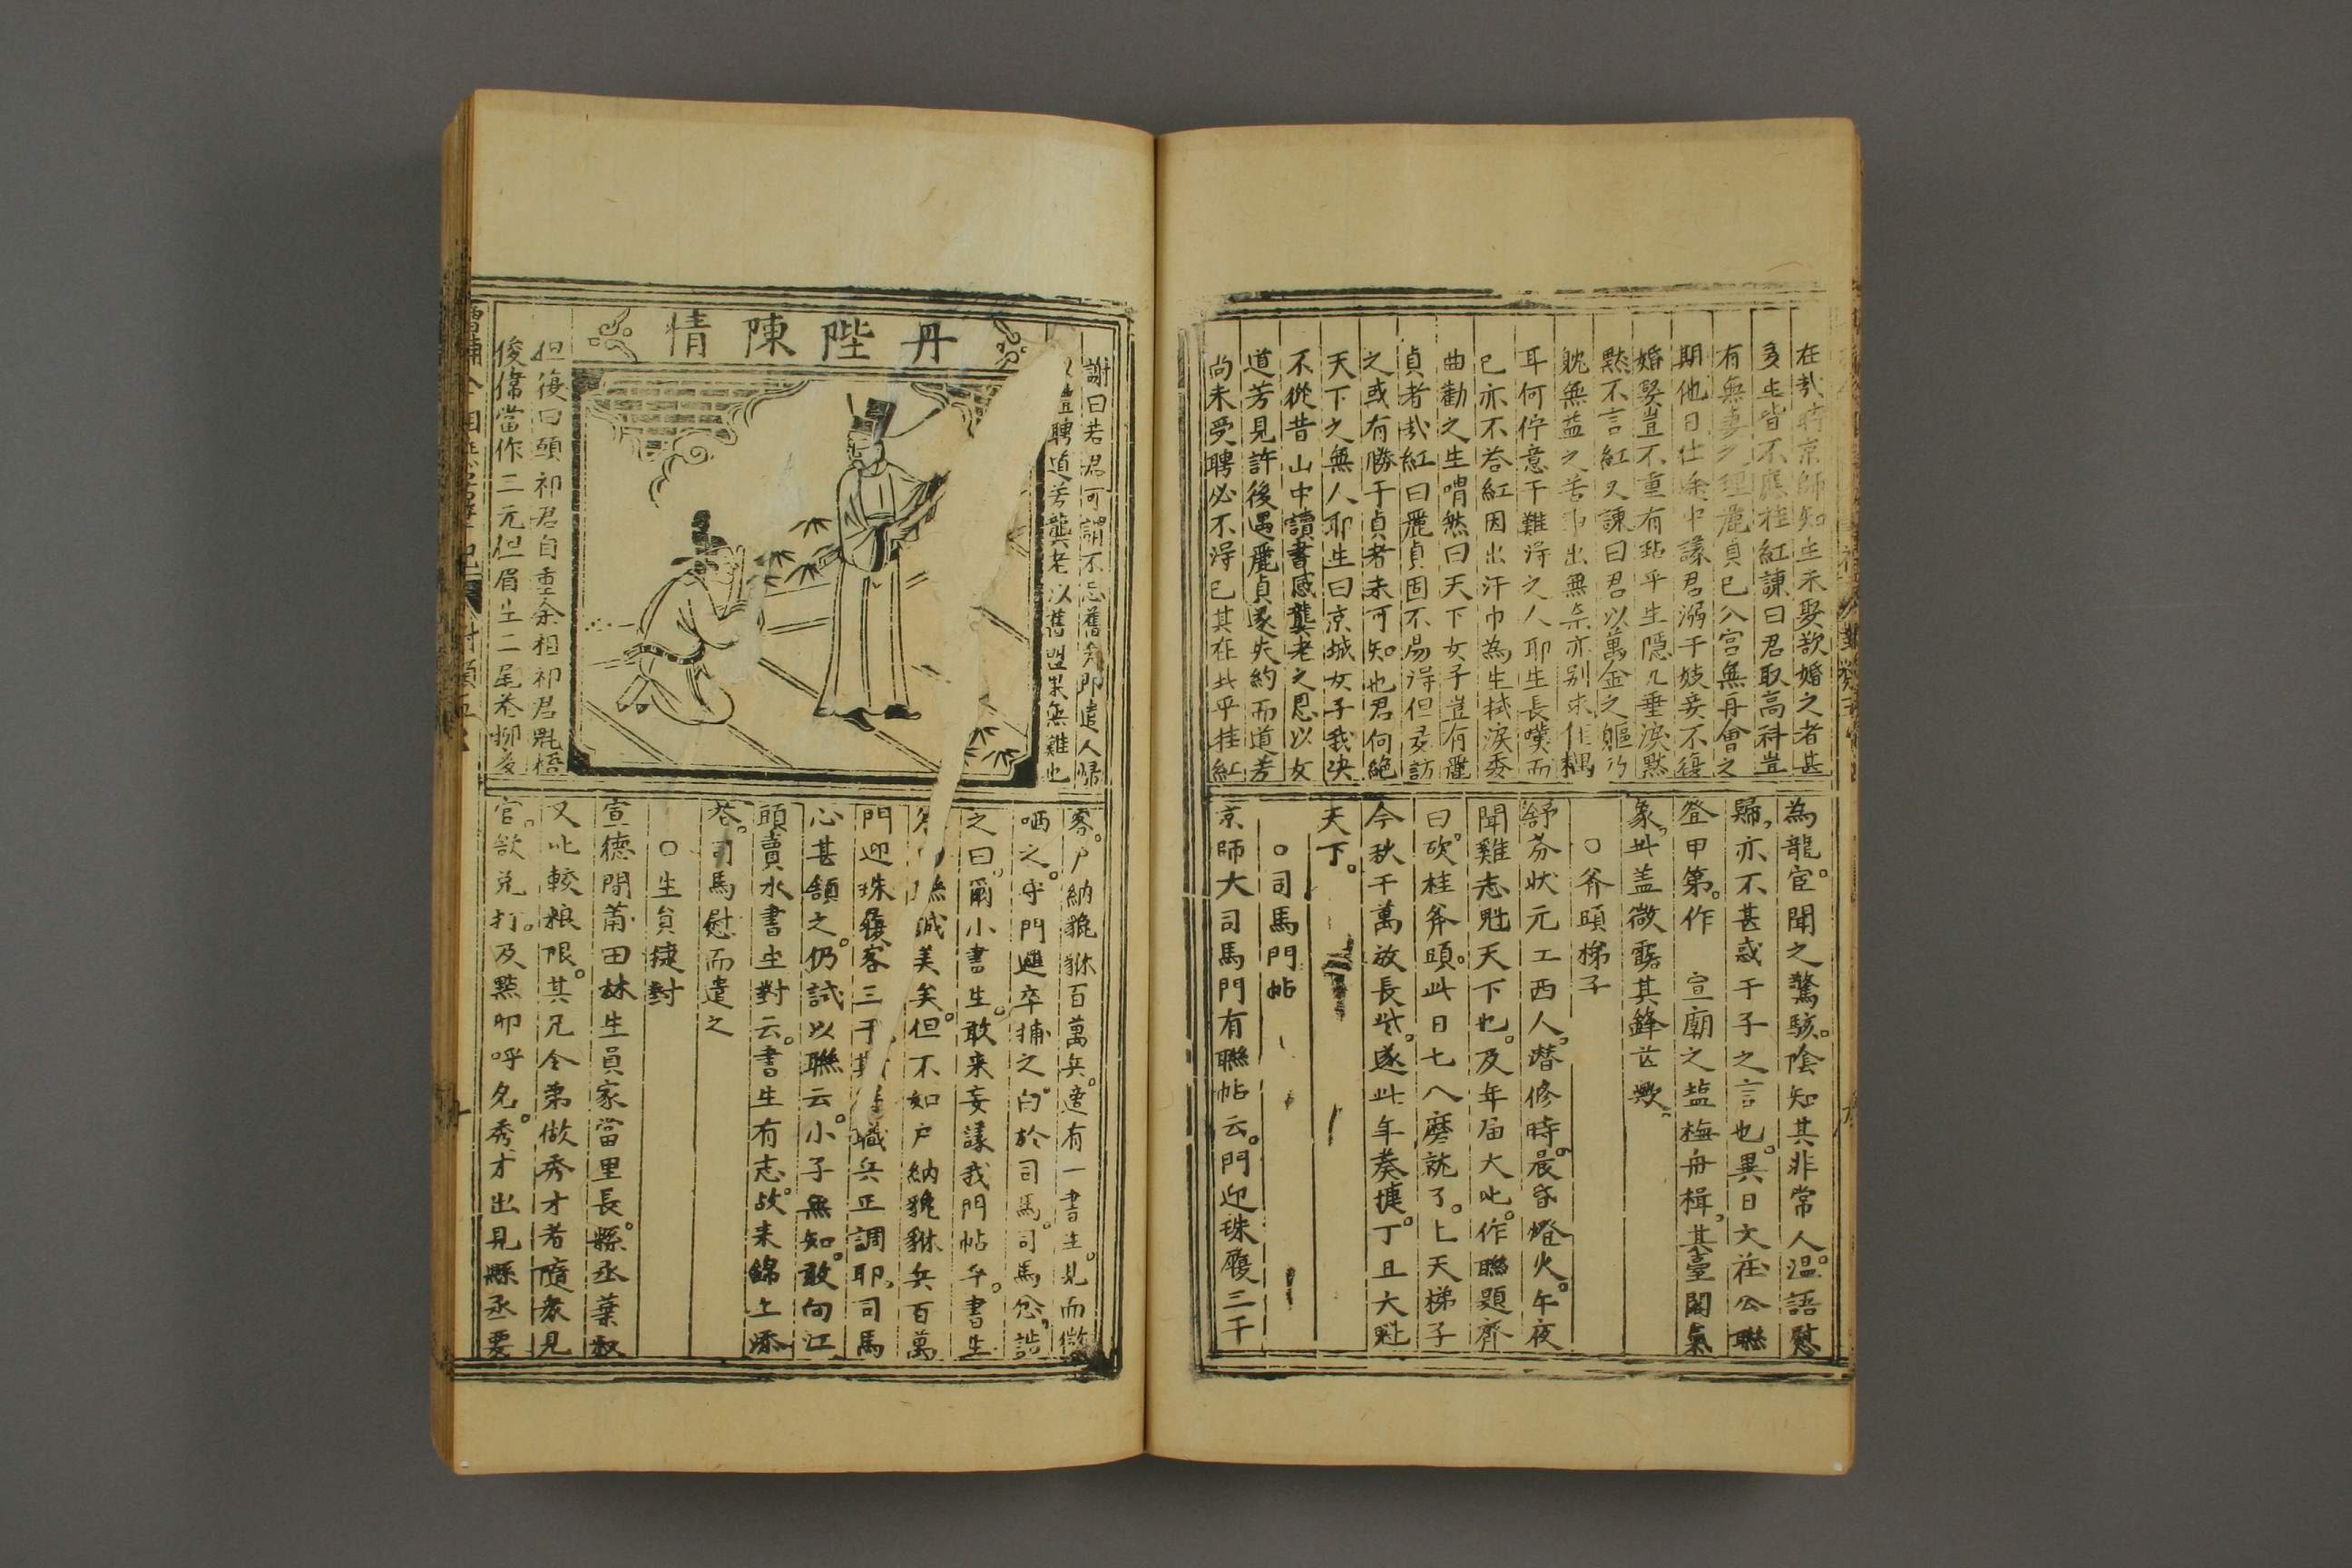 在此時京師知生未娶欲婚之者甚
多生皆不應桂紅諫曰君取高科豈
有無妻之理麗貞已入宮無再會之
期他日仕途中議君溺于妓妾不復
婚娶豈不重有玷乎生隱几垂淚默
默不言紅又諫曰君以萬金之軀乃
躭無益之苦事出無柰亦別求佳耦
耳何佇意于難得之人耶生長嘆而
已亦不答紅因出汗巾為生拭淚委
曲勸之生喟然曰天下女子豈有麗
貞者哉紅曰麗貞固不易得但多訪
之或有勝于貞者未可知也君何絕
天下之無人耶生曰京城女子我決
不從昔山中讀書感龔老之恩以女
道芳見許後遇麗貞遂失約而道芳
尚未受聘必不得已其在此乎桂紅
為龍宦。聞之驚駭。陰知其非常人。溫語慰
歸，亦不甚惑于子之言也。異日文莊公聯
登甲第。作 宣廟之鹽梅舟楫，其臺閣氣
象，此盖微露其鋒芒歟。
○斧頭梯子
舒芬狀元工西人。潜修時。晨昏燈火。午夜
聞雞志魁天下也。及年届大比。作聯題齊
曰。砍桂斧頭。此日七八磨就了。上天梯子
今秋千萬放長些。遂此年奏捷。丁丑大魁
天下。
○司馬門帖
京師大司馬門有聯帖云。門迎珠履三千
謝曰若君可謂不忘舊矣即遣人歸
以禮聘道芳龔老以舊盟果無難也
丹陛陳情
但復曰頭祁君自重余相祁君氈梧
俊偉當作三元但眉生二尾恐柳多
客。戶納貔貅百萬兵。適有一書生。見而微
哂之。守門邏卒捕之。白於司馬。司馬忿，詰
之曰，爾小書生。敢来妄議我門帖乎。書生
聯誠美矣。但不如戶納貔貅兵百萬
門迎珠履客三千職兵正調耶，司馬
心甚頷之。仍試以聯云。小子無知。敢向江
頭賣水書生對云。書生有志。故来錦上添
花。司馬慰而遣之
○生員捷對
宣德間莆田林生員家當里長。縣丞葉叙
又比較粮限。其兄令弟做秀才者隨衆見
官。欲免打。及點卯呼名。秀才出見縣丞要